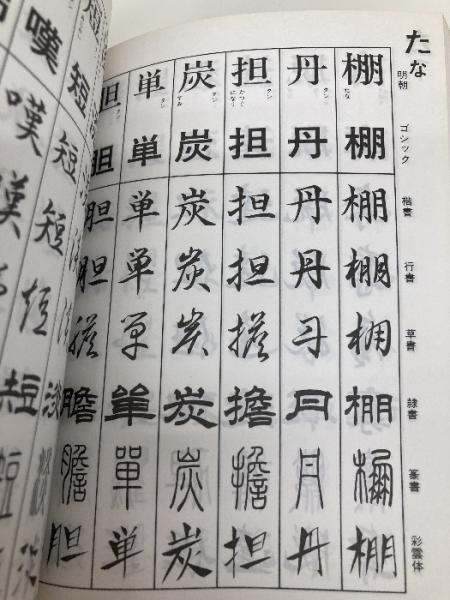 たな
明朝 ゴシック 楷書 行書 草書 隷書 篆書 彩雲体
棚 たな 棚 棚 棚 棚 棚 棚 棚
丹 タン 丹 丹 丹 丹 丹 丹 丹
担 タン かつぐ になう 担 担 担 擔 擔 擔 担
炭 タン すみ 炭 炭 炭 炭 炭 炭 炭
単 タン 単 単 単 単 単 單 単
胆 タン 胆 胆 胆 膽 膽 膽 胆
短 短 短 短 短 短 短
嘆 嘆 嘆